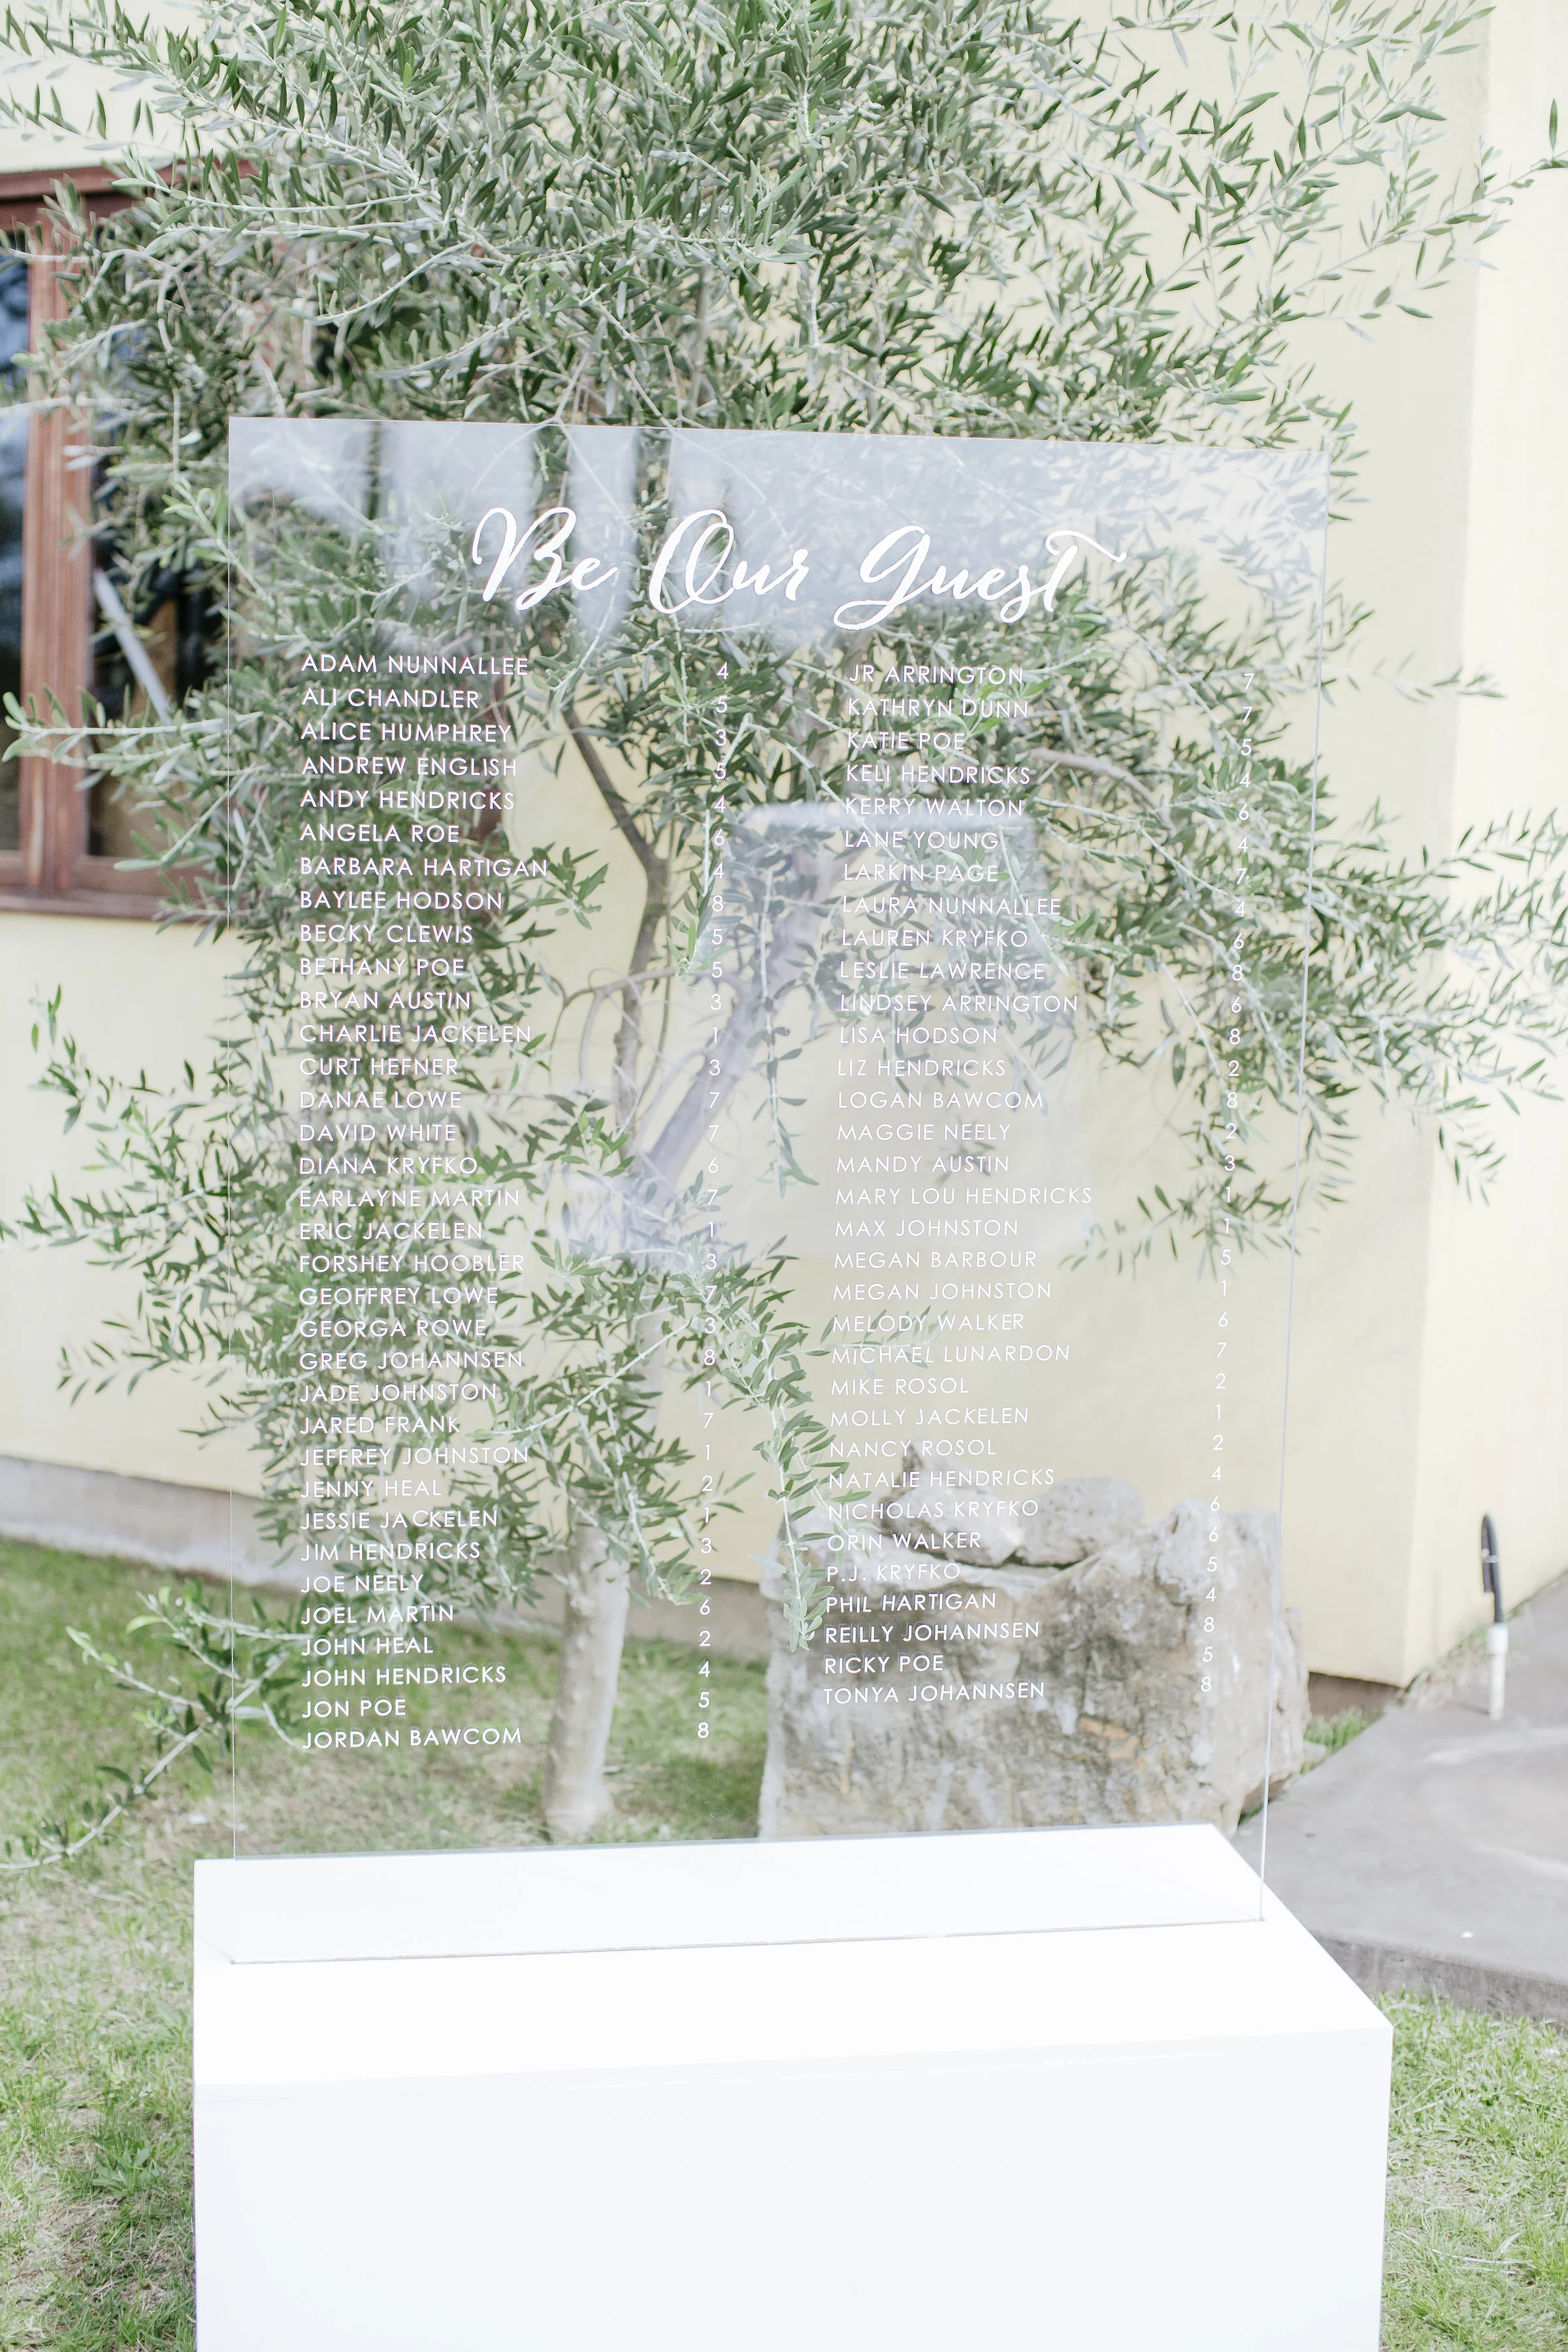 Be Our Guest
ADAM NUNNALLEE 4
ALI CHANDLER 5
ALICE HUMPHREY 3
ANDREW ENGLISH 5
ANDY HENDRICKS 4
ANGELA ROE 6
BARBARA HARTIGAN 4
BAYLEE HODSON 8
BECKY CLEWIS 5
BETHANY POE 5
BRYAN AUSTIN 3
CHARLIE JACKELEN 1
CURT HEFNER 3
DANAE LOWE 7
DAVID WHITE 7
DIANA KRYFKO 6
EARLAYNE MARTIN 7
ERIC JACKELEN 1
FORSHEY HOOBLER 3
GEOFFREY LOWE 7
GEORGA ROWE 3
GREG JOHANNSEN 8
JADE JOHNSTON 1
JARED FRANK 7
JEFFREY JOHNSTON 1
JENNY HEAL 2
JESSIE JACKELEN 1
JIM HENDRICKS 3
JOE NEELY 2
JOEL MARTIN 6
JOHN HEAL 2
JOHN HENDRICKS 4
JON POE 5
JORDAN BAWCOM 8
JR ARRINGTON 7
KATHRYN DUNN 7
KATIE POE 5
KELI HENDRICKS 4
KERRY WALTON 6
LANE YOUNG 4
LARKIN PAGE 7
LAURA NUNNALLEE 4
LAUREN KRYFKO 6
LESLIE LAWRENCE 8
LINDSEY ARRINGTON 6
LISA HODSON 8
LIZ HENDRICKS 2
LOGAN BAWCOM 8
MAGGIE NEELY 2
MANDY AUSTIN 3
MARY LOU HENDRICKS 1
MAX JOHNSTON 1
MEGAN BARBOUR 5
MEGAN JOHNSTON 1
MELODY WALKER 6
MICHAEL LUNARDON 7
MIKE ROSOL 2
MOLLY JACKELEN 1
NANCY ROSOL 2
NATALIE HENDRICKS 4
NICHOLAS KRYFKO 6
ORIN WALKER 6
P.J. KRYFKO 5
PHIL HARTIGAN 4
REILLY JOHANNSEN 8
RICKY POE 5
TONYA JOHANNSEN 8